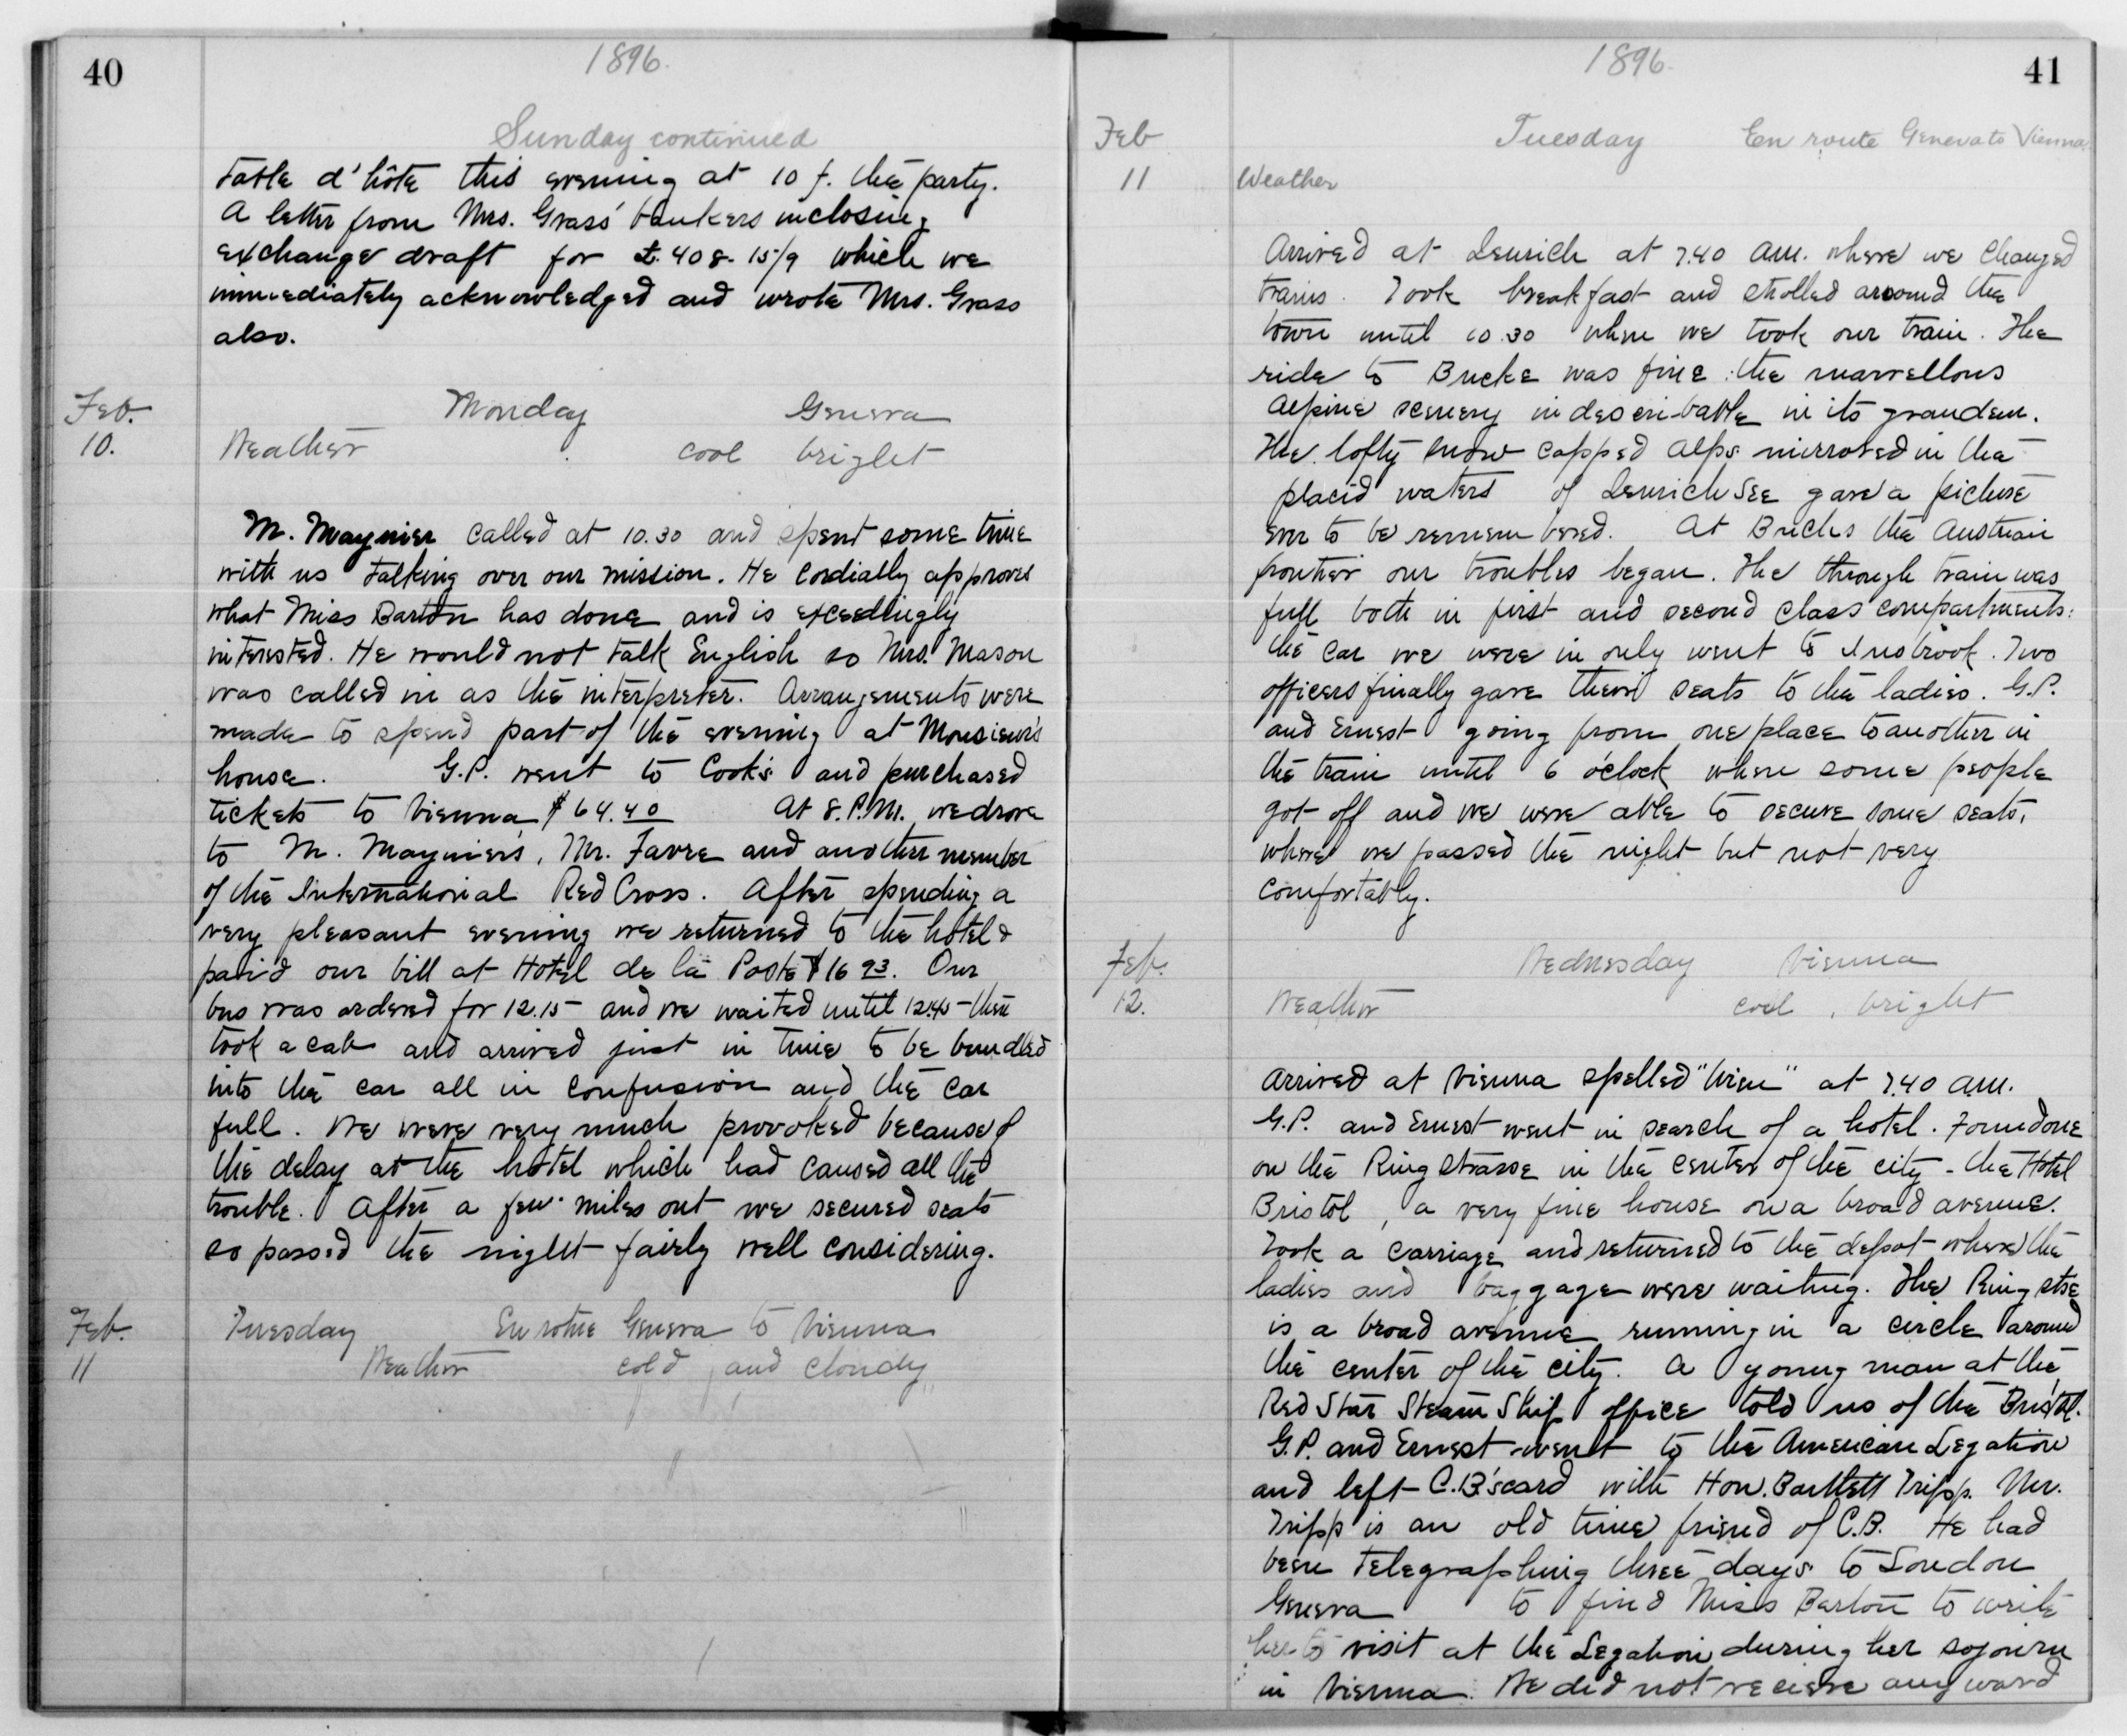 40
1896.
Sunday continued
table d'hôte this evening at 10 f. the party.
A letter from Mrs. Grass' bankers inclosing
exchange draft for £.408.15/9 which we
immediately acknowledged and wrote Mrs. Grass
also.
Feb. Monday Geneva
10. Weather cool bright
M. Moynier called at 10.30 and spent some time
with us talking over our mission. He cordially approves
what Miss Barton has done and is exceedingly
interested. He would not talk English so Mrs. Mason
was called in as the interpreter. Arrangements were
made to spend part of the evening at Monsieur's
house. G.P. went to Cook's and purchased
tickets to Vienna $64.40 At 8.P.M. we drove
to M. Moynier's, Mr. Favre and another member
of the International Red Cross. After spending a
very pleasant evening we returned to the hotel &
paid our bill at Hotel de la Poste $16 93. Our
bus was ordered for 12.15 and we waited until 12.45 - then
took a cab and arrived just in time to be bundled
into the car all in confusion and the car
full. We were very much provoked because of
the delay at the hotel which had caused all the
trouble. After a few miles out we secured seats
so passed the night fairly well considering.
Feb. Tuesday En route Geneva to Vienna
11 Weather cold and cloudy
41
1896.
Feb Tuesday En route Geneva to Vienna.
11 Weather
Arrived at Zeurich at 7.40 am. where we changed
trains. Took breakfast and strolled around the
town until 10.30 when we took our train. The
ride to Bucks was fine: the marvellous
Alpine scenery indescribable in its grandeur.
The lofty snow capped Alps mirrored in the
placid waters of Zeurich See gave a picture
ever to be remembered. At Buchs the Austrian
frontier our troubles began. The through train was
full both in first and second class compartments:
the car we were in only went to Insbrook. Two
officers finally gave their seats to the ladies. G.P.
and Ernest going from one place to another in
the train until 6 o'clock when some people
got off and we were able to secure some seats,
where we passed the night but not very
comfortably.
Feb. Wednesday Vienna
12. Weather cool, bright
Arrived at Vienna spelled "Wien" at 7.40 a.m.
G.P. and Ernest went in search of a hotel. Found one
on the Ring strasse in the center of the city - the Hotel
Bristol, a very fine house on a broad avenue.
Took a carriage and returned to the depot where the
ladies and baggage were waiting. The Ring stse
is a broad avenue running in a circle around
the center of the city. A young man at the
Red Star Steam Ship office told us of the Bristol.
G.P. and Ernest went to the American Legation
and left C.B's card with Hon. Bartlett Tripp. Mr.
Tripp is an old time friend of C.B. He had
been telegraphing three days to London
Geneva to find Miss Barton to write
her to visit at the Legation during her sojourn
in Vienna. We did not recieve any word